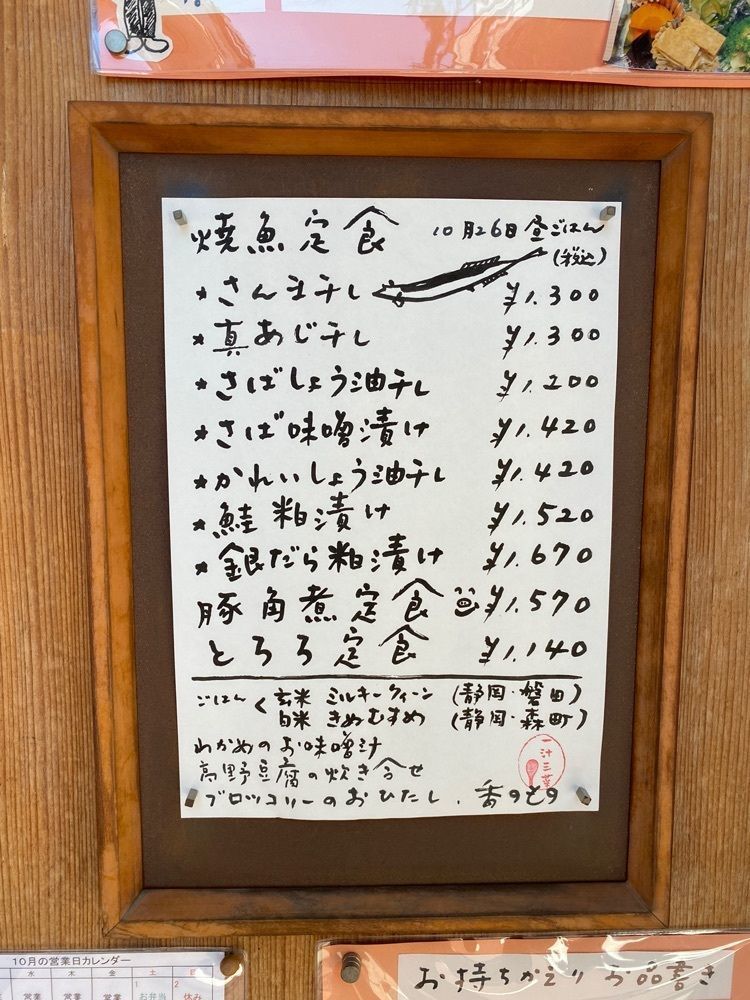 焼魚定食 10月26日昼ごはん
(税込)
*さんま干し ¥1.300
*真あじ干し ¥1.300
*さばしょう油干し ¥1.200
*さば味噌漬け ¥1.420
*かれいしょう油干し ¥1.420
*鮭粕漬け ¥1.520
*銀だら粕漬け ¥1.670
豚角煮定食 ¥1.570
とろろ定食 ¥1.140
ごはん< 玄米 ミルキークィーン (静岡・磐田)
白米 きぬむすめ (静岡・森町)
わかめのお味噌汁
高野豆腐の炊き合せ
一汁三菜
ブロッコリーのおひたし、香のもの
10月の営業日カレンダー
水 木 金 土 日
1 2
営業 営業 営業 お弁当 休み
お持ちかえり お品書き